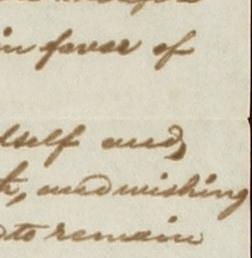 in favor of
dself and
th, and wishing
to remain